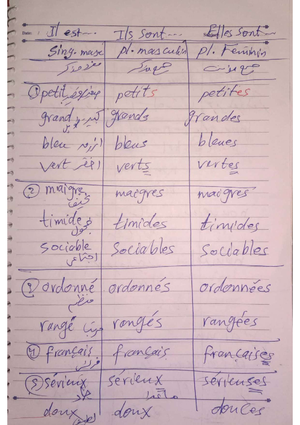 Il est... Ils sont... Elles sont...
Sing. masc pl. masculin pl. Feminin
مفرد مذكر جمع مذكر جمع مؤنث
① petit petits petites
grand كبير grands grandes
bleu أزرق bleus bleues
vert أخضر verts vertes
② maigre نحيف maigres maigres
timide خجول timides timides
sociable اجتماعي sociables sociables
ordonné منظم ordonnés ordonnées
rangé rangés rangées
④ français français françaises
⑤ sérieux جاد sérieux sérieuses
doux doux douces